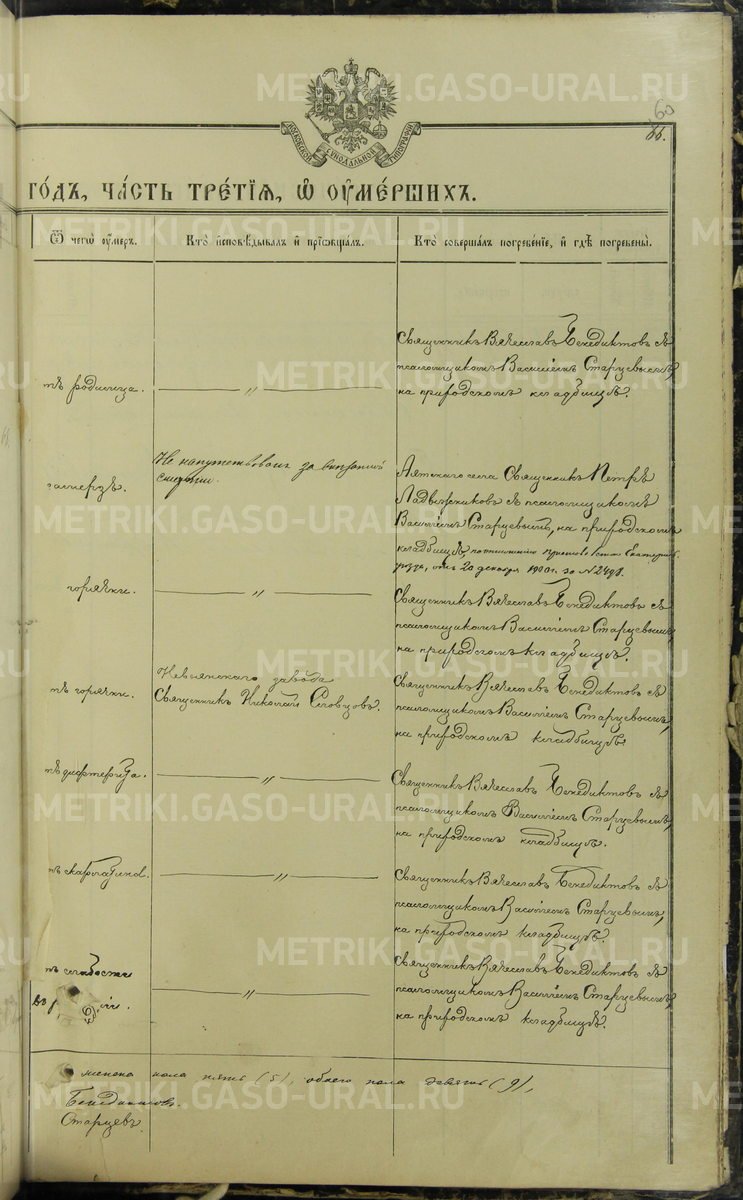 60
66.
МОСКОВСКОЙ СѴНОДАЛЬНОЙ ТИПОГРАФІИ
ГО́ДЪ, ЧА́СТЬ ТРЕ́ТІѦ, Ѿ ОУМЕ́РШИХЪ.
Ѿ чегѡ̀ оу҆́меръ.
Кто̀ и҆сповѣ́дывалъ и҆ прїѡбща́лъ.
Кто̀ соверша́лъ погребе́нїе, и҆ гдѣ̀ погребены̀.
тъ родимца.
— " —
Священникъ Вячеславъ Бенедиктовъ съ
псаломщикомъ Василіемъ Старцевымъ,
на приходскомъ кладбищѣ.
замерзъ.
Не напутствованъ за внезапной
смертью.
Аятскаго села Священникъ Петръ
Ладыжниковъ съ псаломщикомъ
Василіемъ Старцевымъ, на приходскомъ
кладбищѣ, по отношенію пристава 3 стана Екатеринб.
уѣзда, отъ 20 декабря 1900 г. за №2498.
горячки.
— " —
Священникъ Вячеславъ Бенедиктовъ съ
псаломщикомъ Василіемъ Старцевымъ,
на приходскомъ кладбищѣ.
тъ горячки.
Невьянскаго завода
Священникъ Николай Словцовъ.
Священникъ Вячеславъ Бенедиктовъ съ
псаломщикомъ Василіемъ Старцевымъ,
на приходскомъ кладбищѣ.
тъ дифтерита.
— " —
Священникъ Вячеславъ Бенедиктовъ съ
псаломщикомъ Василіемъ Старцевымъ,
на приходскомъ кладбищѣ.
тъ скарлатины.
— " —
Священникъ Вячеславъ Бенедиктовъ съ
псаломщикомъ Василіемъ Старцевымъ,
на приходскомъ кладбищѣ.
тъ слабости
— " —
Священникъ Вячеславъ Бенедиктовъ съ
псаломщикомъ Василіемъ Старцевымъ,
на приходскомъ кладбищѣ.
женска пола пять (5), обоего пола девять (9).
Бенедиктовъ.
Старцевъ.
METRIKI.GASO-URAL.RU